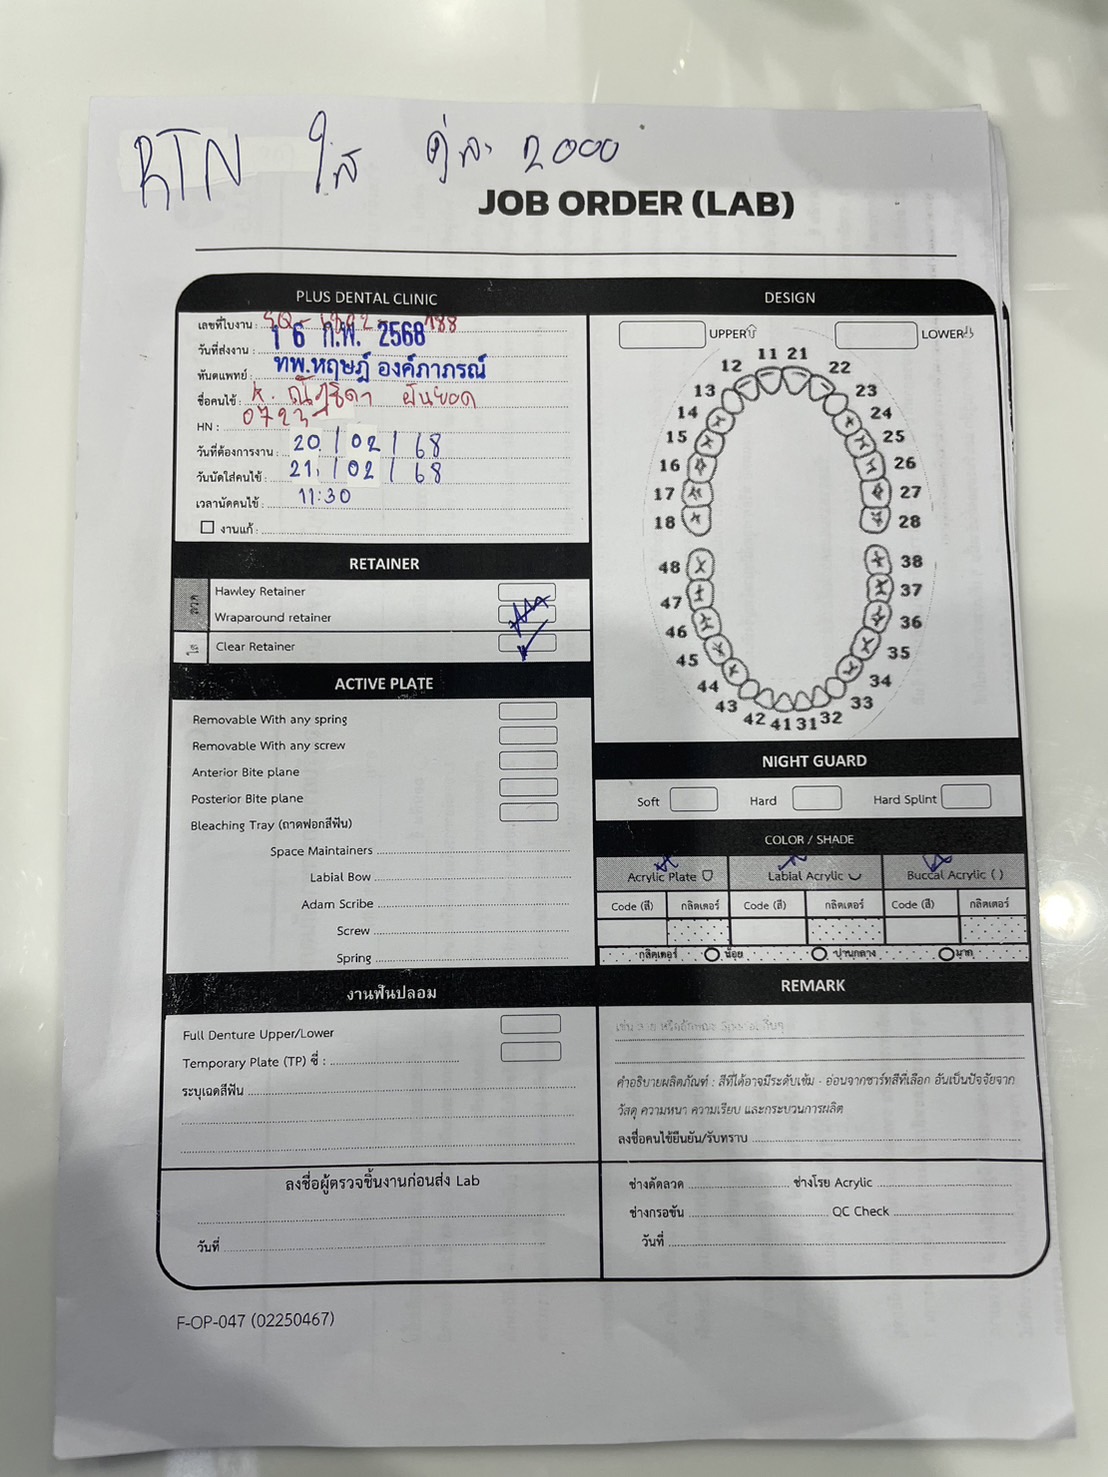 RTN ใส คู่ละ 2000
JOB ORDER (LAB)
PLUS DENTAL CLINIC
เลขที่ใบงาน : 188
วันที่ส่งงาน : 16 ก.พ. 2568
ทันตแพทย์ : ทพ.หฤษฎ์ องค์ภาภรณ์
ชื่อคนไข้ : K. ณัฎฐิดา ผันยอด
HN : 0723
วันที่ต้องการงาน : 20 / 02 / 68
วันนัดใส่คนไข้ : 21 / 02 / 68
เวลานัดคนไข้ : 11:30
งานแก้ :
RETAINER
ลวด
Hawley Retainer
Wraparound retainer
ใส
Clear Retainer
ACTIVE PLATE
Removable With any spring
Removable With any screw
Anterior Bite plane
Posterior Bite plane
Bleaching Tray (ถาดฟอกสีฟัน)
Space Maintainers
Labial Bow
Adam Scribe
Screw
Spring
งานฟันปลอม
Full Denture Upper/Lower
Temporary Plate (TP) ซี่ :
ระบุเฉดสีฟัน
ลงชื่อผู้ตรวจชิ้นงานก่อนส่ง Lab
วันที่
DESIGN
UPPER LOWER
11 21
12 22
13 23
14 24
15 25
16 26
17 27
18 28
48 38
47 37
46 36
45 35
44 34
43 33
42 41 31 32
NIGHT GUARD
Soft Hard Hard Splint
COLOR / SHADE
Acrylic Plate Labial Acrylic Buccal Acrylic ( )
Code (สี) กลิตเตอร์ Code (สี) กลิตเตอร์ Code (สี) กลิตเตอร์
กลิตเตอร์ น้อย ปานกลาง มาก
REMARK
เช่น ลาย หรือลักษณะ Special อื่นๆ
คำอธิบายผลิตภัณฑ์ : สีที่ได้อาจมีระดับเข้ม - อ่อนจากชาร์ทสีที่เลือก อันเป็นปัจจัยจาก
วัสดุ ความหนา ความเรียบ และกระบวนการผลิต
ลงชื่อคนไข้ยืนยัน/รับทราบ
ช่างดัดลวด ช่างโรย Acrylic
ช่างกรอขัน QC Check
วันที่
F-OP-047 (02250467)